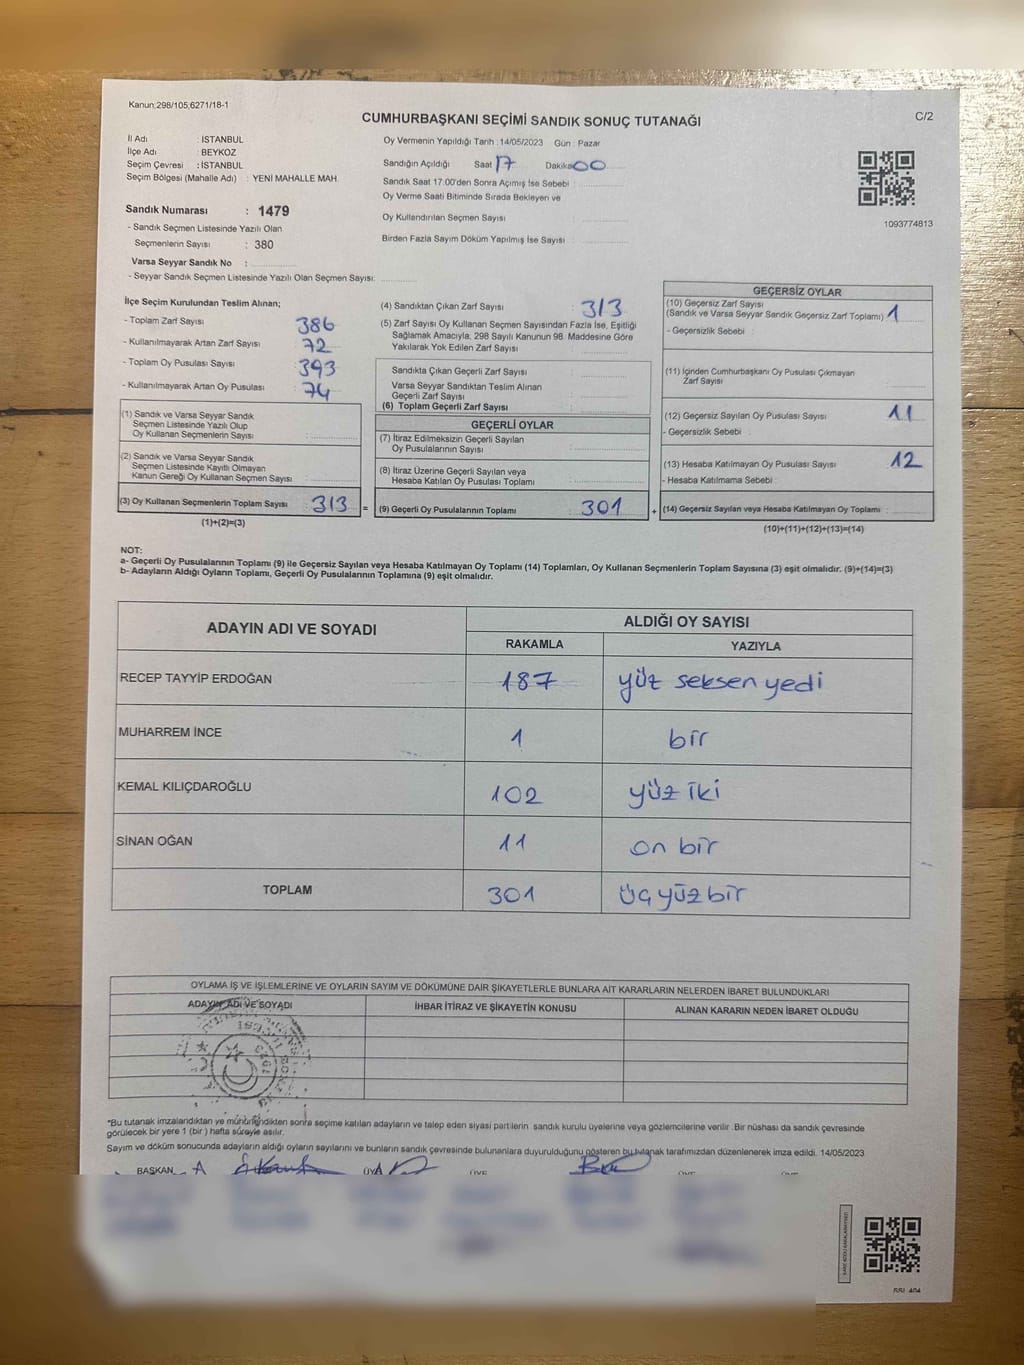 Kanun:298/105;6271/18-1
C/2
CUMHURBAŞKANI SEÇİMİ SANDIK SONUÇ TUTANAĞI
İl Adı : İSTANBUL
İlçe Adı : BEYKOZ
Seçim Çevresi : İSTANBUL
Seçim Bölgesi (Mahalle Adı) : YENİ MAHALLE MAH.
Sandık Numarası : 1479
- Sandık Seçmen Listesinde Yazılı Olan
Seçmenlerin Sayısı : 380
Varsa Seyyar Sandık No :
- Seyyar Sandık Seçmen Listesinde Yazılı Olan Seçmen Sayısı:
Oy Vermenin Yapıldığı Tarih : 14/05/2023 Gün : Pazar
Sandığın Açıldığı Saat 17 Dakika 00
Sandık Saat 17:00'den Sonra Açımış İse Sebebi :
Oy Verme Saati Bitiminde Sırada Bekleyen ve
Oy Kullandırılan Seçmen Sayısı :
Birden Fazla Sayım Döküm Yapılmış İse Sayısı :
1093774813
İlçe Seçim Kurulundan Teslim Alınan;
- Toplam Zarf Sayısı 386
- Kullanılmayarak Artan Zarf Sayısı : 72
- Toplam Oy Pusulası Sayısı : 393
- Kullanılmayarak Artan Oy Pusulası : 74
(1) Sandık ve Varsa Seyyar Sandık
Seçmen Listesinde Yazılı Olup
Oy Kullanan Seçmenlerin Sayısı :
(2) Sandık ve Varsa Seyyar Sandık
Seçmen Listesinde Kayıtlı Olmayan
Kanun Gereği Oy Kullanan Seçmen Sayısı :
(3) Oy Kullanan Seçmenlerin Toplam Sayısı : 313 =
(1)+(2)=(3)
(4) Sandıktan Çıkan Zarf Sayısı : 313
(5) Zarf Sayısı Oy Kullanan Seçmen Sayısından Fazla İse, Eşitliği
Sağlamak Amacıyla, 298 Sayılı Kanunun 98. Maddesine Göre
Yakılarak Yok Edilen Zarf Sayısı :
Sandıkta Çıkan Geçerli Zarf Sayısı :
Varsa Seyyar Sandıktan Teslim Alınan
Geçerli Zarf Sayısı :
(6) Toplam Geçerli Zarf Sayısı :
GEÇERLİ OYLAR
(7) İtiraz Edilmeksizin Geçerli Sayılan
Oy Pusulalarının Sayısı :
(8) İtiraz Üzerine Geçerli Sayılan veya
Hesaba Katılan Oy Pusulası Toplamı :
(9) Geçerli Oy Pusulalarının Toplamı : 301 +
GEÇERSİZ OYLAR
(10) Geçersiz Zarf Sayısı
(Sandık ve Varsa Seyyar Sandık Geçersiz Zarf Toplamı) : 1
- Geçersizlik Sebebi :
(11) İçinden Cumhurbaşkanı Oy Pusulası Çıkmayan
Zarf Sayısı :
(12) Geçersiz Sayılan Oy Pusulası Sayısı : 11
- Geçersizlik Sebebi :
(13) Hesaba Katılmayan Oy Pusulası Sayısı : 12
- Hesaba Katılmama Sebebi :
(14) Geçersiz Sayılan veya Hesaba Katılmayan Oy Toplamı :
(10)+(11)+(12)+(13)=(14)
NOT:
a- Geçerli Oy Pusulalarının Toplamı (9) ile Geçersiz Sayılan veya Hesaba Katılmayan Oy Toplamı (14) Toplamları, Oy Kullanan Seçmenlerin Toplam Sayısına (3) eşit olmalıdır. (9)+(14)=(3)
b- Adayların Aldığı Oyların Toplamı, Geçerli Oy Pusulalarının Toplamına (9) eşit olmalıdır.
ADAYIN ADI VE SOYADI ALDIĞI OY SAYISI
RAKAMLA YAZIYLA
RECEP TAYYİP ERDOĞAN 187 yüz seksen yedi
MUHARREM İNCE 1 bir
KEMAL KILIÇDAROĞLU 102 yüz iki
SİNAN OĞAN 11 on bir
TOPLAM 301 üç yüz bir
OYLAMA İŞ VE İŞLEMLERİNE VE OYLARIN SAYIM VE DÖKÜMÜNE DAİR ŞİKAYETLERLE BUNLARA AİT KARARLARIN NELERDEN İBARET BULUNDUKLARI
ADAYIN ADI VE SOYADI İHBAR İTİRAZ VE ŞİKAYETİN KONUSU ALINAN KARARIN NEDEN İBARET OLDUĞU
*Bu tutanak imzalandıktan ve mühürlendikten sonra seçime katılan adayların ve talep eden siyasi partilerin sandık kurulu üyelerine veya gözlemcilerine verilir. Bir nüshası da sandık çevresinde
görülecek bir yere 1 (bir) hafta süreyle asılır.
Sayım ve döküm sonucunda adayların aldığı oyların sayılarını ve bunların sandık çevresinde bulunanlara duyurulduğunu gösteren bu tutanak tarafımızdan düzenlenerek imza edildi. 14/05/2023
BAŞKAN ÜYE ÜYE ÜYE ÜYE